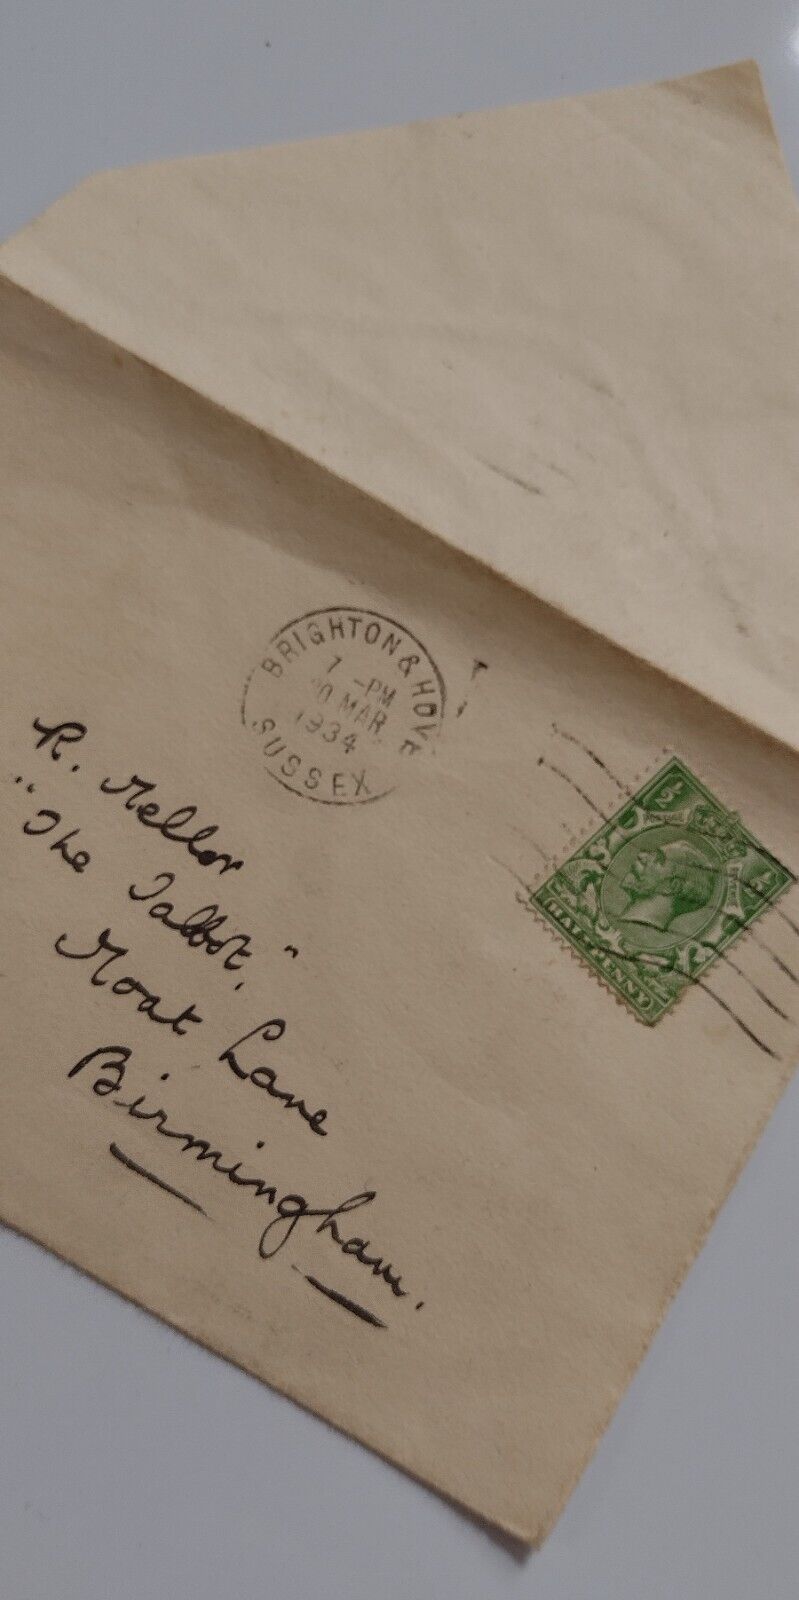 BRIGHTON & HOVE
7 - PM
MAR
1934
SUSSEX
POSTAGE
½ ½
HALFPENNY
R. Mellor
"The Talbot,"
Moat Lane
Birmingham.